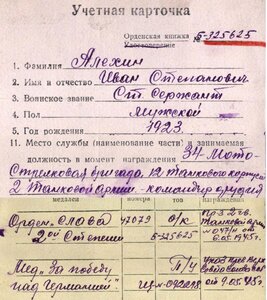 Учетная карточка
Орденская книжка Б-325625
Удостоверение
1. Фамилия Алехин
2. Имя и отчество Иван Степанович
3. Воинское звание Ст. Сержант
4. Пол мужской
5. Год рождения 1923
11. Место службы (наименование части) и занимаемая
должность в момент награждения 34 Мото-
Стрелковая бригада, 12 танкового корпуса
2 Танковой армии - командир орудия
медалей номера награждения
Орден „Слава" 42029 О/К Пр 2 гв.
2ой Степени Б-325625 Танковой арм.
Мед. „За победу П/У
над Германией"